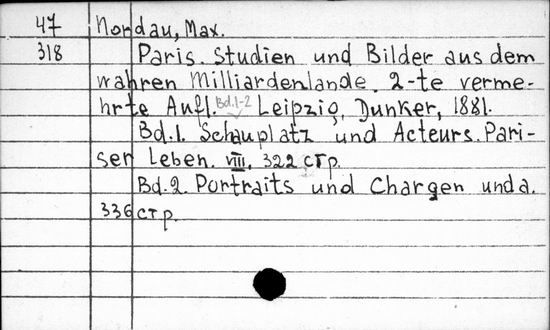 47 Nordau, Max.
318 Paris. Studien und Bilder aus dem
wahren Milliardenlande. 2-te verme-
hrte Aufl. Bd.1-2 Leipzig, Dunker, 1881.
Bd.1. Schauplatz und Acteurs. Pari-
ser Leben. VIII, 322 стр.
Bd.2. Portraits und Chargen und a.
336 стр.